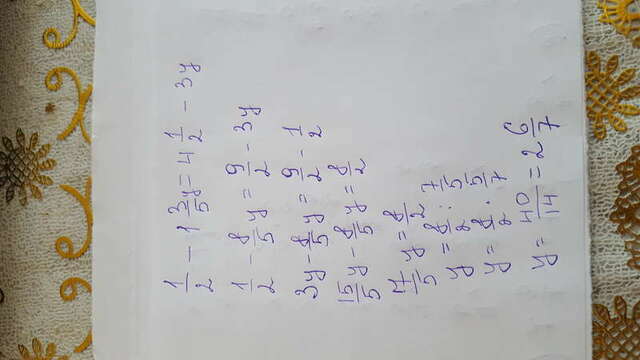 1/2 - 1 3/5 y = 4 1/2 - 3y
1/2 - 8/5 y = 9/2 - 3y
3y - 8/5 y = 9/2 - 1/2
15/5 y - 8/5 y = 8/2
7/5 y = 8/2
y = 8/2 : 7/5
y = 8/2 · 5/7
y = 40/14 = 2 6/7